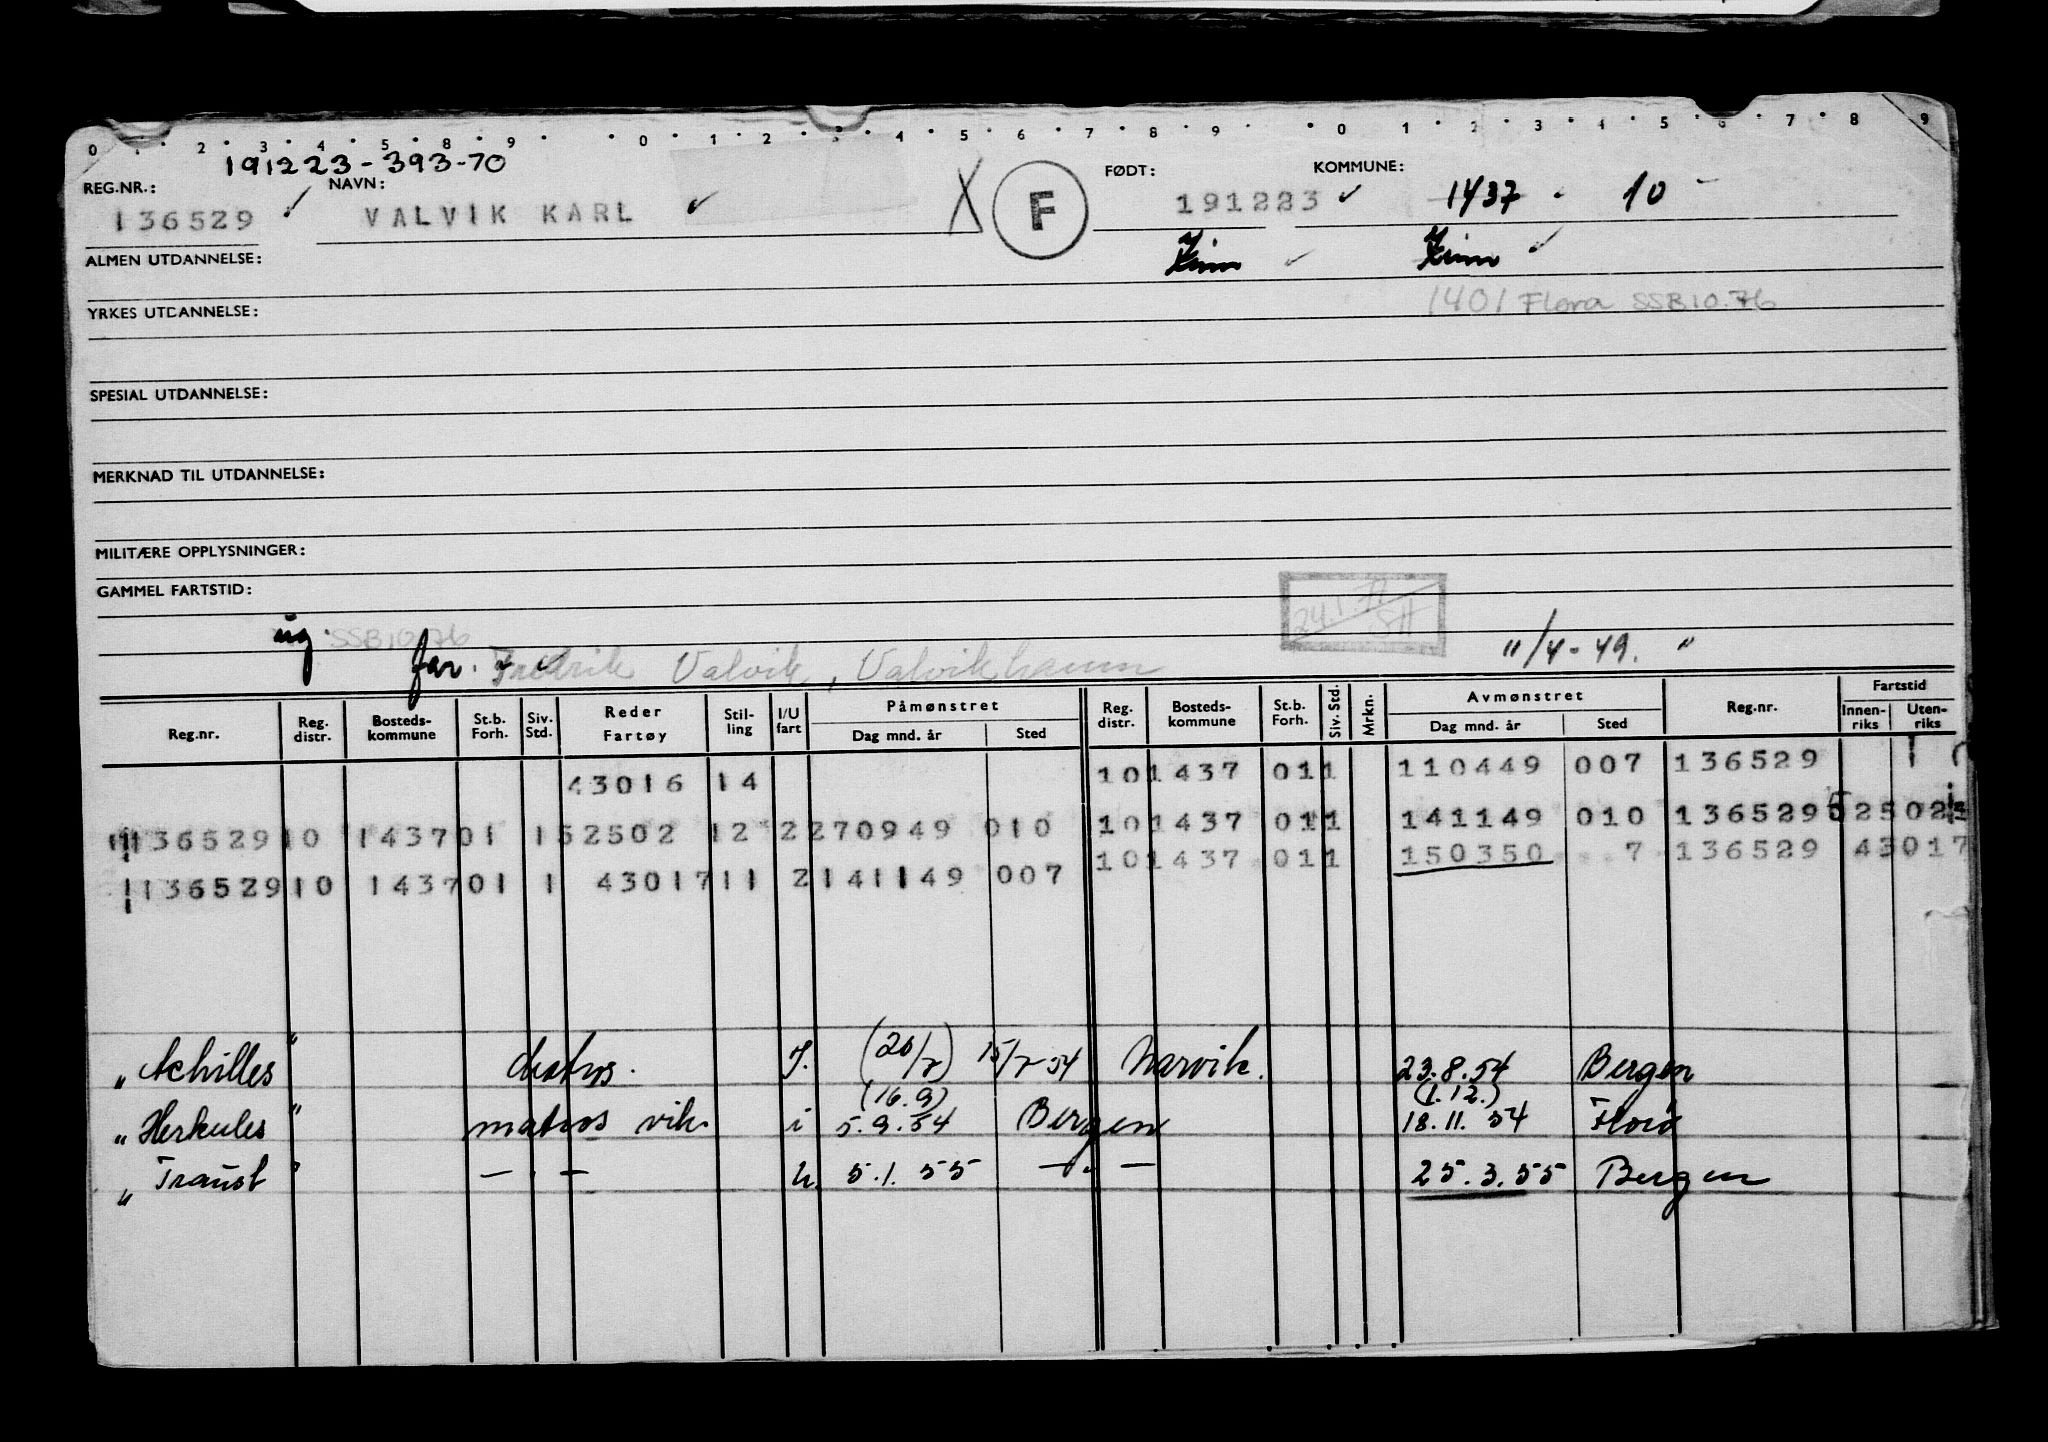 0 1 2 3 4 5 6 7 8 9 0 1 2 3 4 5 6 7 8 9 0 1 2 3 4 5 6 7 8 9
191223-393-70
REG.NR.: NAVN: FØDT: KOMMUNE:
136529 ✓ VALVIK KARL ✓ X F 191223 ✓ 1437 - 10 -
ALMEN UTDANNELSE: Kinn ✓ Kinn ✓
YRKES UTDANNELSE: 1401 Flora SSB10.76
SPESIAL UTDANNELSE:
MERKNAD TIL UTDANNELSE:
MILITÆRE OPPLYSNINGER:
GAMMEL FARTSTID:
ug. SSB10.76 11/4-49. "
far. Fredrik Valvik, Valvikhavn
Reg.nr. Reg. distr. Bosteds-kommune St.b. Forh. Siv. Std. Reder Fartøy Stil-ling I/U fart Påmønstret Dag mnd. år Sted Reg. distr. Bosteds-kommune St.b. Forh. Siv. Std. Mrkn. Avmønstret Dag mnd. år Sted Reg.nr. Fartstid Innen-riks Uten-riks
43016 14 10 1437 01 1 110449 007 136529
136529 10 1437 01 1 52502 12 2 270949 010 10 1437 01 1 141149 010 136529 52502
136529 10 1437 01 1 43017 11 2 141149 007 10 1437 01 1 150350 7 136529 43017
"Achilles" I. 15/7 54 Narvik. 23.8.54 Bergen
(16.9) (1.12.)
"Herkules" matros vik. i 5.9.54 Bergen 18.11.54 Florø
"Traust" — . — u. 5.1.55 — . — 25.3.55 Bergen